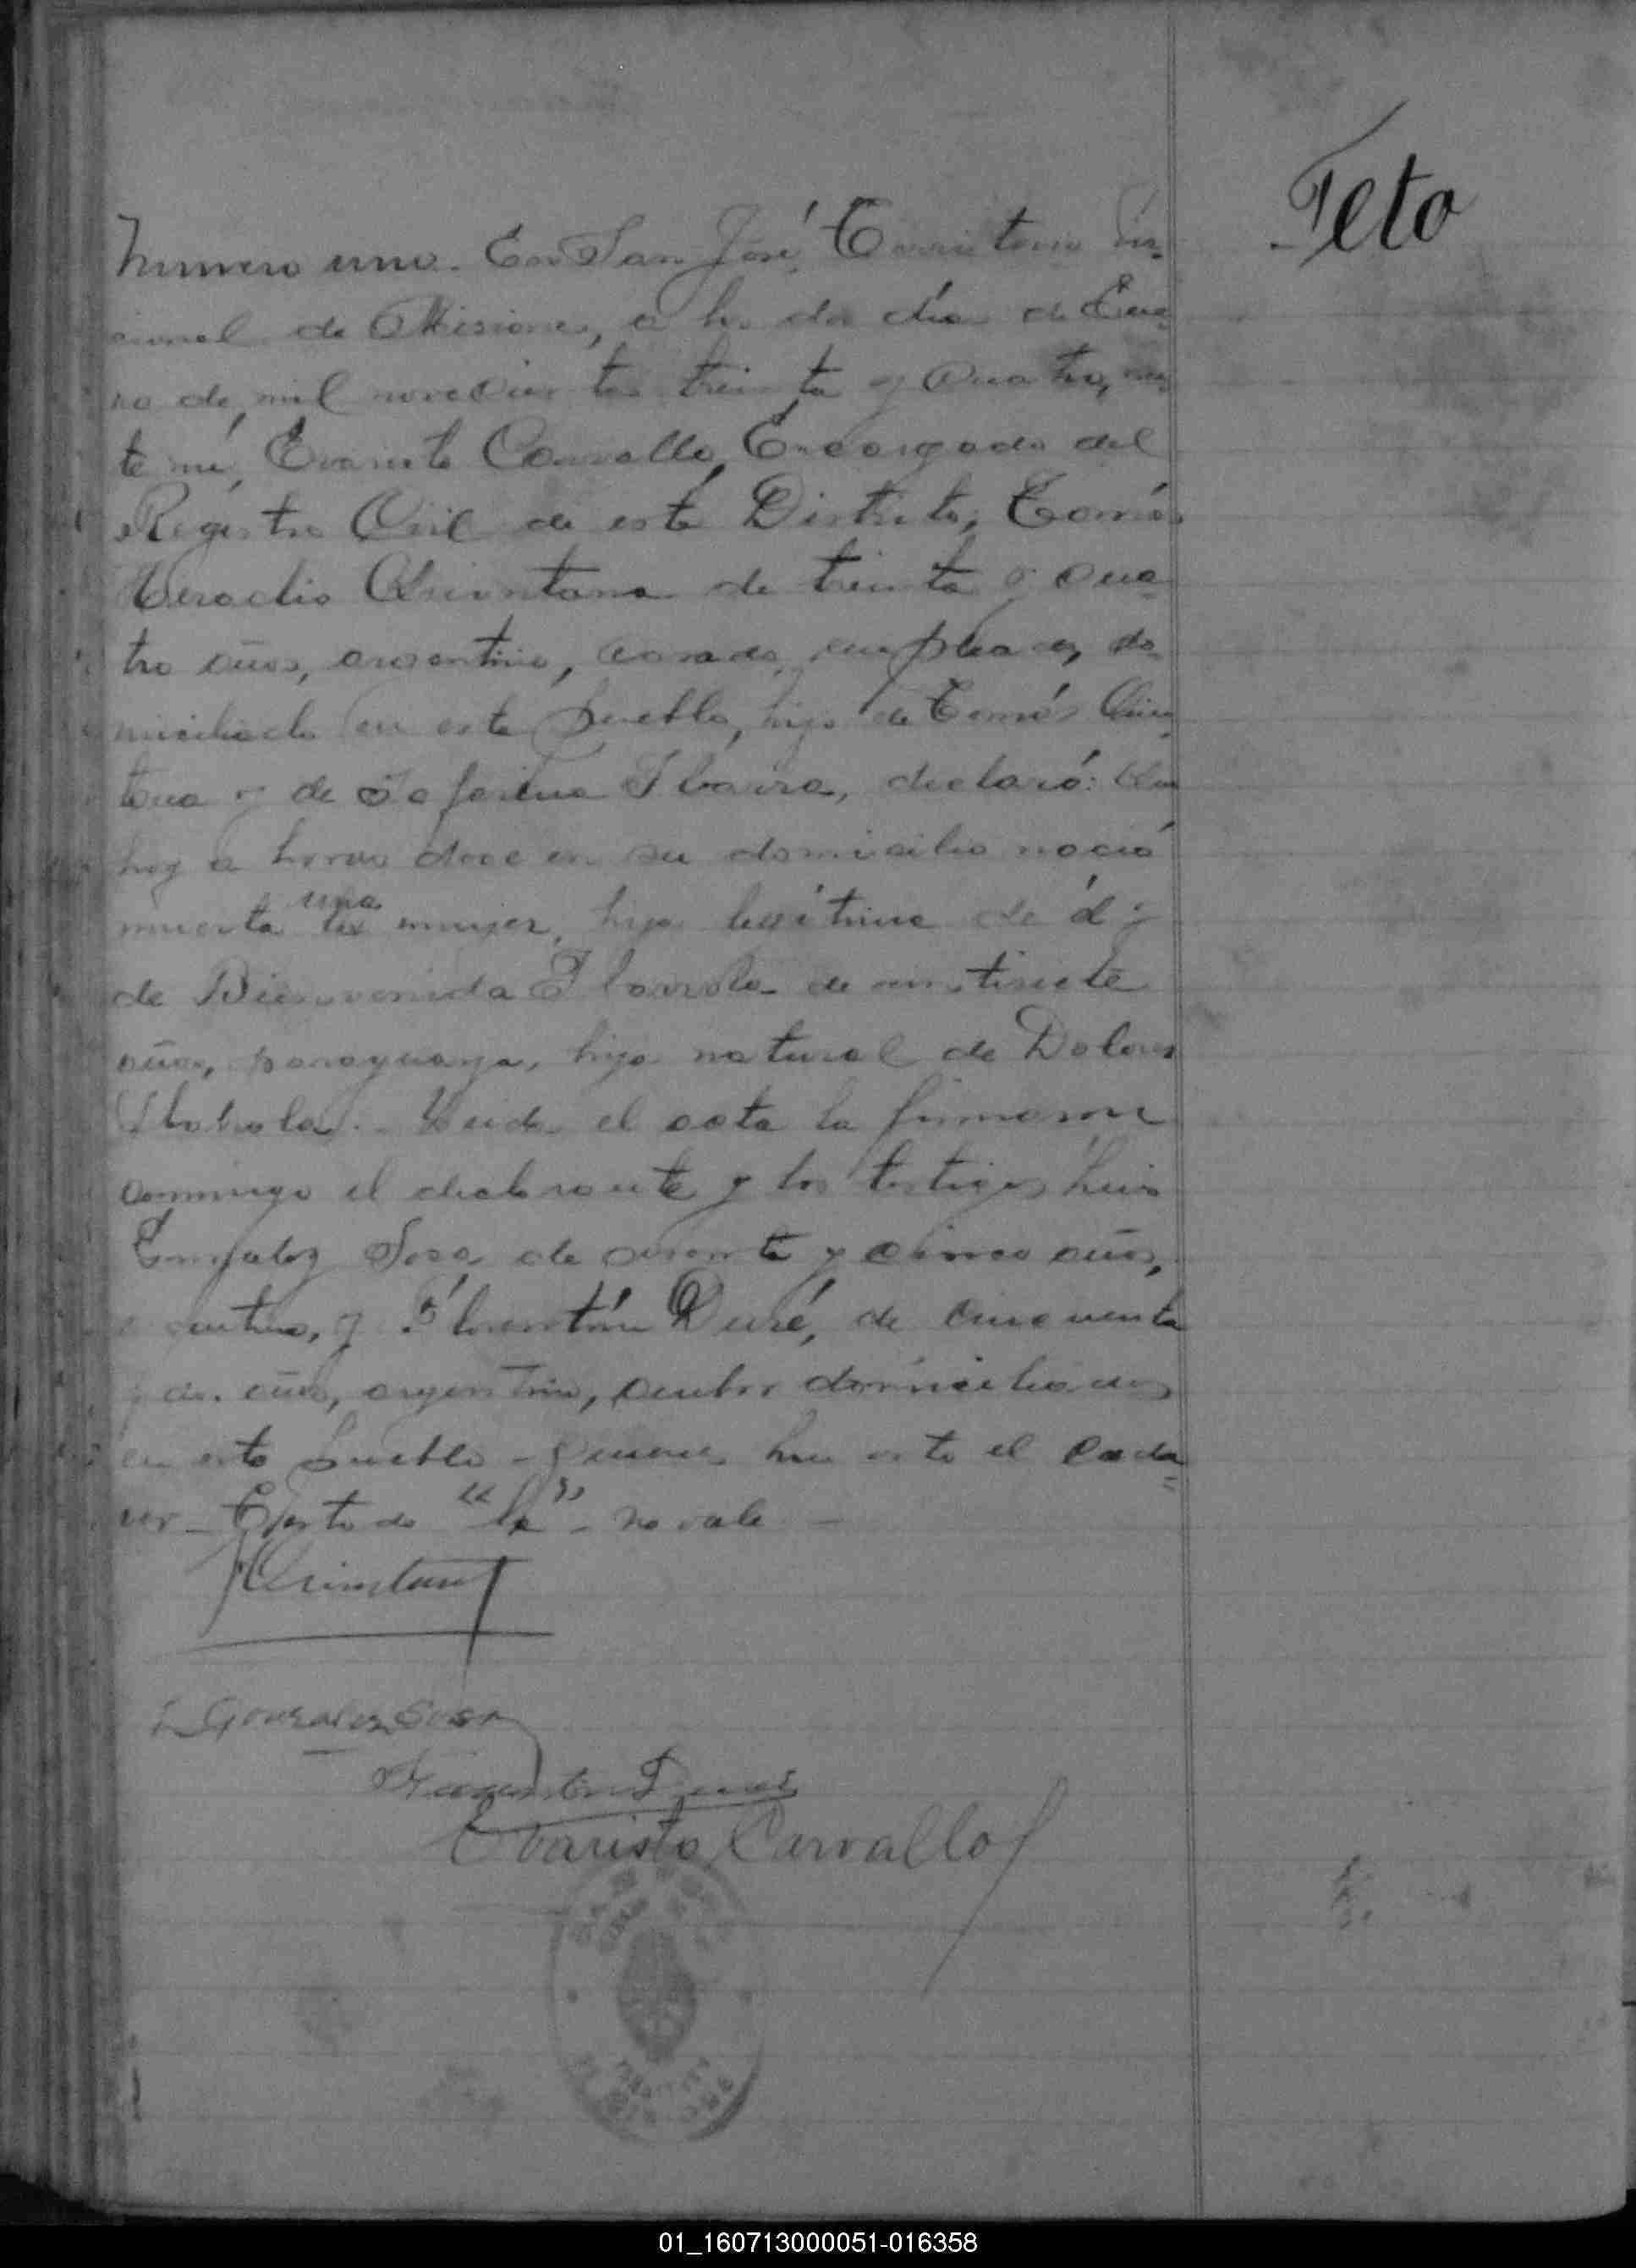 Feto
Numero uno. En San José, Territorio Na-
cional de Misiones, a los dos días de Ene-
ro de mil novecientos treinta y cuatro, an-
te mí, Evaristo Carvallo, Encargado del
Registro Civil de este Distrito, Tomás
Heraclio Quintana de treinta y cua-
tro años, argentino, casado, empleado, do-
miciliado en este pueblo, hijo de Tomás Quin-
tana y de Ibarra, declaró: Que
hoy a horas doce en su domicilio nació
muerta una la mujer, hija legítima de él y
de Bienvenida Ibarrola de veintisiete
años, paraguaya, hija natural de Dolores
Ibarrola. Leida el acta la firmaron
conmigo el declarante y los testigos Luis
González Sosa de cuarenta y cinco años,
argentino, y Florentín Duré, de cincuenta
y dos años, argentino, ambos domiciliados
en este pueblo - quienes han visto el cada-
ver - Testado "la" - no vale -
Quintana
L Gonzalez Sosa
Florentin Duré
Evaristo Carvallo
SAN JOSE
01_160713000051-016358